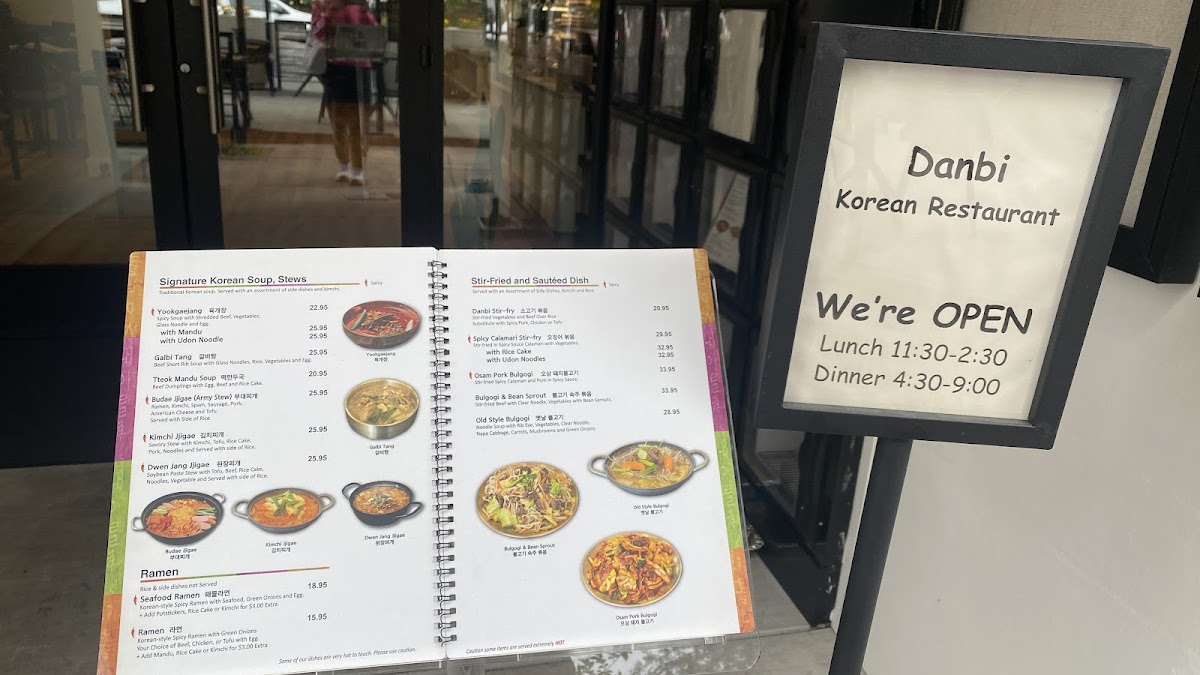 Signature Korean Soup, Stews
Spicy
Traditional Korean soup, Served with an assortment of side dishes and kimchi.
Yookgaejang 육개장 22.95
Spicy Soup with Shredded Beef, Vegetables,
Glass Noodle and Egg.
with Mandu 25.95
with Udon Noodle 25.95
Galbi Tang 갈비탕 25.95
Beef Short Rib Soup with Glass Noodles, Rice, Vegetables and Egg.
Tteok Mandu Soup 떡만두국 20.95
Beef Dumplings with Egg, Beef and Rice Cake.
Budae Jjigae (Army Stew) 부대찌개 25.95
Ramen, Kimchi, Spam, Sausage, Pork,
American Cheese and Tofu.
Served with Side of Rice
Kimchi Jjigae 김치찌개 25.95
Savory Stew with Kimchi, Tofu, Rice Cake,
Pork, Noodles and Served with side of Rice.
Dwen Jang Jjigae 된장찌개 25.95
Soybean Paste Stew with Tofu, Beef, Rice Cake,
Noodles, Vegetable and Served with side of Rice.
Yookgaejang
육개장
Galbi Tang
갈비탕
Budae Jjigae
부대찌개
Kimchi Jjigae
김치찌개
Dwen Jang Jjigae
된장찌개
Ramen
Rice & side dishes not Served
Seafood Ramen 해물라면 18.95
Korean-style Spicy Ramen with Seafood, Green Onions and Egg.
+ Add Potstickers, Rice Cake or Kimchi for $3.00 Extra
Ramen 라면 15.95
Korean-style Spicy Ramen with Green Onions
Your Choice of Beef, Chicken, or Tofu with Egg.
+ Add Mandu, Rice Cake or Kimchi for $3.00 Extra
Some of our dishes are very hot to touch. Please use caution.
Stir-Fried and Sautéed Dish
Spicy
Served with an Assortment of Side Dishes, Kimchi and Rice.
Danbi Stir-fry 소고기 볶음 20.95
Stir-fried Vegetables and Beef Over Rice.
Substitute with Spicy Pork, Chicken or Tofu
Spicy Calamari Stir-fry 오징어 볶음 29.95
Stir-fried in Spicy Sauce Calamari with Vegetables.
with Rice Cake 32.95
with Udon Noodles 32.95
Osam Pork Bulgogi 오삼 돼지불고기 33.95
Stir-fried Spicy Calamari and Pork in Spicy Sauce.
Bulgogi & Bean Sprout 불고기 숙주 볶음 33.95
Stir-fried Beef with Clear Noodle, Vegetables with Bean Sprouts.
Old Style Bulgogi 옛날 불고기 28.95
Noodle Soup with Rib Eye, Vegetables, Clear Noodle,
Napa Cabbage, Carrots, Mushrooms and Green Onions
Old Style Bulgogi
옛날 불고기
Bulgogi & Bean Sprout
불고기 숙주 볶음
Osam Pork Bulgogi
오삼 돼지 불고기
Caution some items are served extremely HOT
Danbi
Korean Restaurant
We're OPEN
Lunch 11:30-2:30
Dinner 4:30-9:00